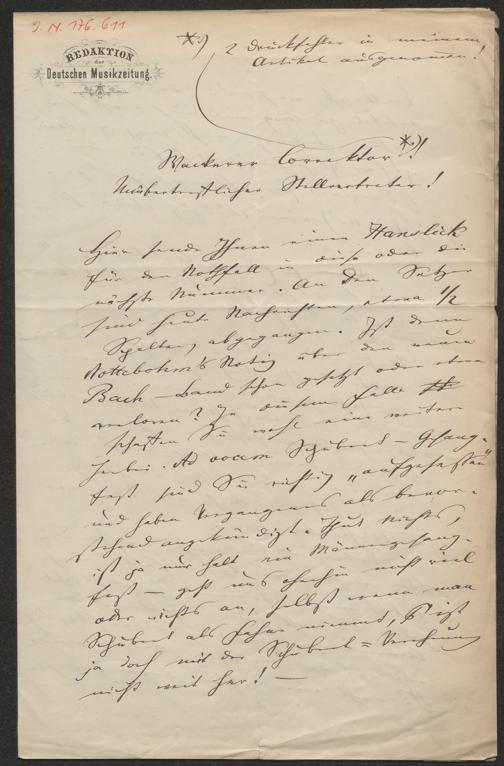 I. N. 176.611
REDAKTION
der
Deutschen Musikzeitung.
*) 2 Druckfehler in meinem
Artikel ausgenommen!
Wackerer Corrector *)!
Unübertrefflicher Stellvertreter!
Hier sende Ihnen einen Hanslick
für den Nothfall in diese oder die
nächste Nummer. An den Setzer
sind heute Nachrichten, etwa 1/2
Spalten, abgegangen. Ist denn
Nottebohm's Notiz über den neuen
Bach-Band schon gesetzt oder etwa
verloren? In diesem Falle
schaffen Sie wohl eine weitere
herbei. Ad vocem Schubert-Gesang-
fest sind Sie richtig „aufgesessen“
und haben Vergangenes als bevor-
stehend angekündigt. Thut nichts,
ist ja nur halt ein Männergesang-
fest — geht uns ohnehin nicht viel
oder nichts an, selbst wenn man
Schubert als Fahne nimmt, ist
ja doch mit der Schubert=Verehrung
nicht weit her! —